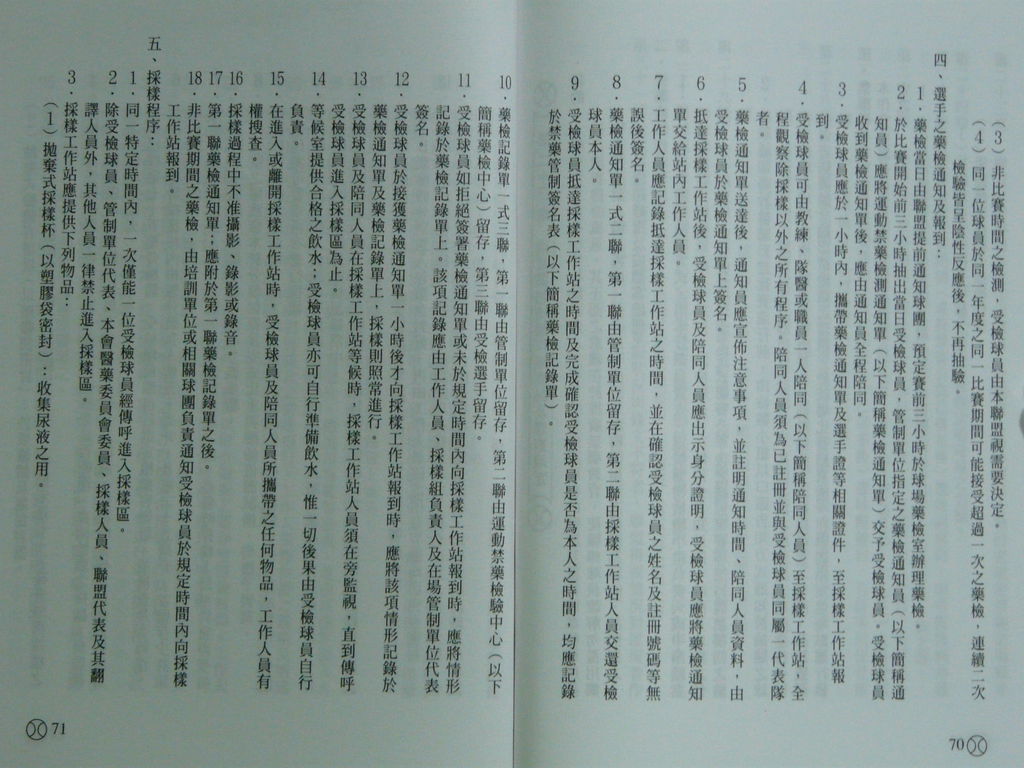 （3）非比賽時間之檢測，受檢球員由本聯盟視需要決定。
（4）同一位球員於同一年度之同一比賽期間可能接受超過一次之藥檢，連續二次
檢驗皆呈陰性反應後，不再抽驗。
四、選手之藥檢通知及報到：
1．藥檢當日由聯盟提前通知球團，預定賽前三小時於球場藥檢室辦理藥檢。
2．於比賽開始前三小時抽出當日受檢球員，管制單位指定之藥檢通知員（以下簡稱通
知員）應將運動禁藥檢測通知單（以下簡稱藥檢通知單）交予受檢球員。受檢球員
收到藥檢通知單後，應由通知員全程陪同。
3．受檢球員應於一小時內，攜帶藥檢通知單及選手證等相關證件，至採樣工作站報
到。
4．受檢球員可由教練、隊醫或職員一人陪同（以下簡稱陪同人員）至採樣工作站，全
程觀察除採樣以外之所有程序。陪同人員須為已註冊並與受檢球員同屬一代表隊
者。
5．藥檢通知單送達後，通知員應宣佈注意事項，並註明通知時間、陪同人員資料，由
受檢球員於藥檢通知單上簽名。
6．抵達採樣工作站後，受檢球員及陪同人員應出示身分證明，受檢球員應將藥檢通知
單交給站內工作人員。
7．工作人員應記錄抵達採樣工作站之時間，並在確認受檢球員之姓名及註冊號碼等無
誤後簽名。
8．藥檢通知單一式二聯，第一聯由管制單位留存，第二聯由採樣工作站人員交還受檢
球員本人。
9．受檢球員抵達採樣工作站之時間及完成確認受檢球員是否為本人之時間，均應記錄
於禁藥管制簽名表（以下簡稱藥檢記錄單）。
70
10．藥檢記錄單一式三聯，第一聯由管制單位留存，第二聯由運動禁藥檢驗中心（以下
簡稱藥檢中心）留存，第三聯由受檢選手留存。
11．受檢球員如拒絕簽署藥檢通知單或未於規定時間內向採樣工作站報到時，應將情形
記錄於藥檢記錄單上。該項記錄應由工作人員、採樣組負責人及在場管制單位代表
簽名。
12．受檢球員於接獲藥檢通知單一小時後才向採樣工作站報到時，應將該項情形記錄於
藥檢通知單及藥檢記錄單上，採樣則照常進行。
13．受檢球員及陪同人員在採樣工作站等候時，採樣工作站人員須在旁監視，直到傳呼
受檢球員進入採樣區為止。
14．等候室提供合格之飲水；受檢球員亦可自行準備飲水，惟一切後果由受檢球員自行
負責。
15．在進入或離開採樣工作站時，受檢球員及陪同人員所攜帶之任何物品，工作人員有
權搜查。
16．採樣過程中不准攝影、錄影或錄音。
17．第一聯藥檢通知單；應附於第一聯藥檢記錄單之後。
18．非比賽期間之藥檢，由培訓單位或相關球團負責通知受檢球員於規定時間內向採樣
工作站報到。
五、採樣程序：
1．同一特定時間內，一次僅能一位受檢球員經傳呼進入採樣區。
2．除受檢球員、管制單位代表、本會醫藥委員會委員、採樣人員、聯盟代表及其翻
譯人員外，其他人員一律禁止進入採樣區。
3．採樣工作站應提供下列物品：
（1）拋棄式採樣杯（以塑膠袋密封）：收集尿液之用。
71